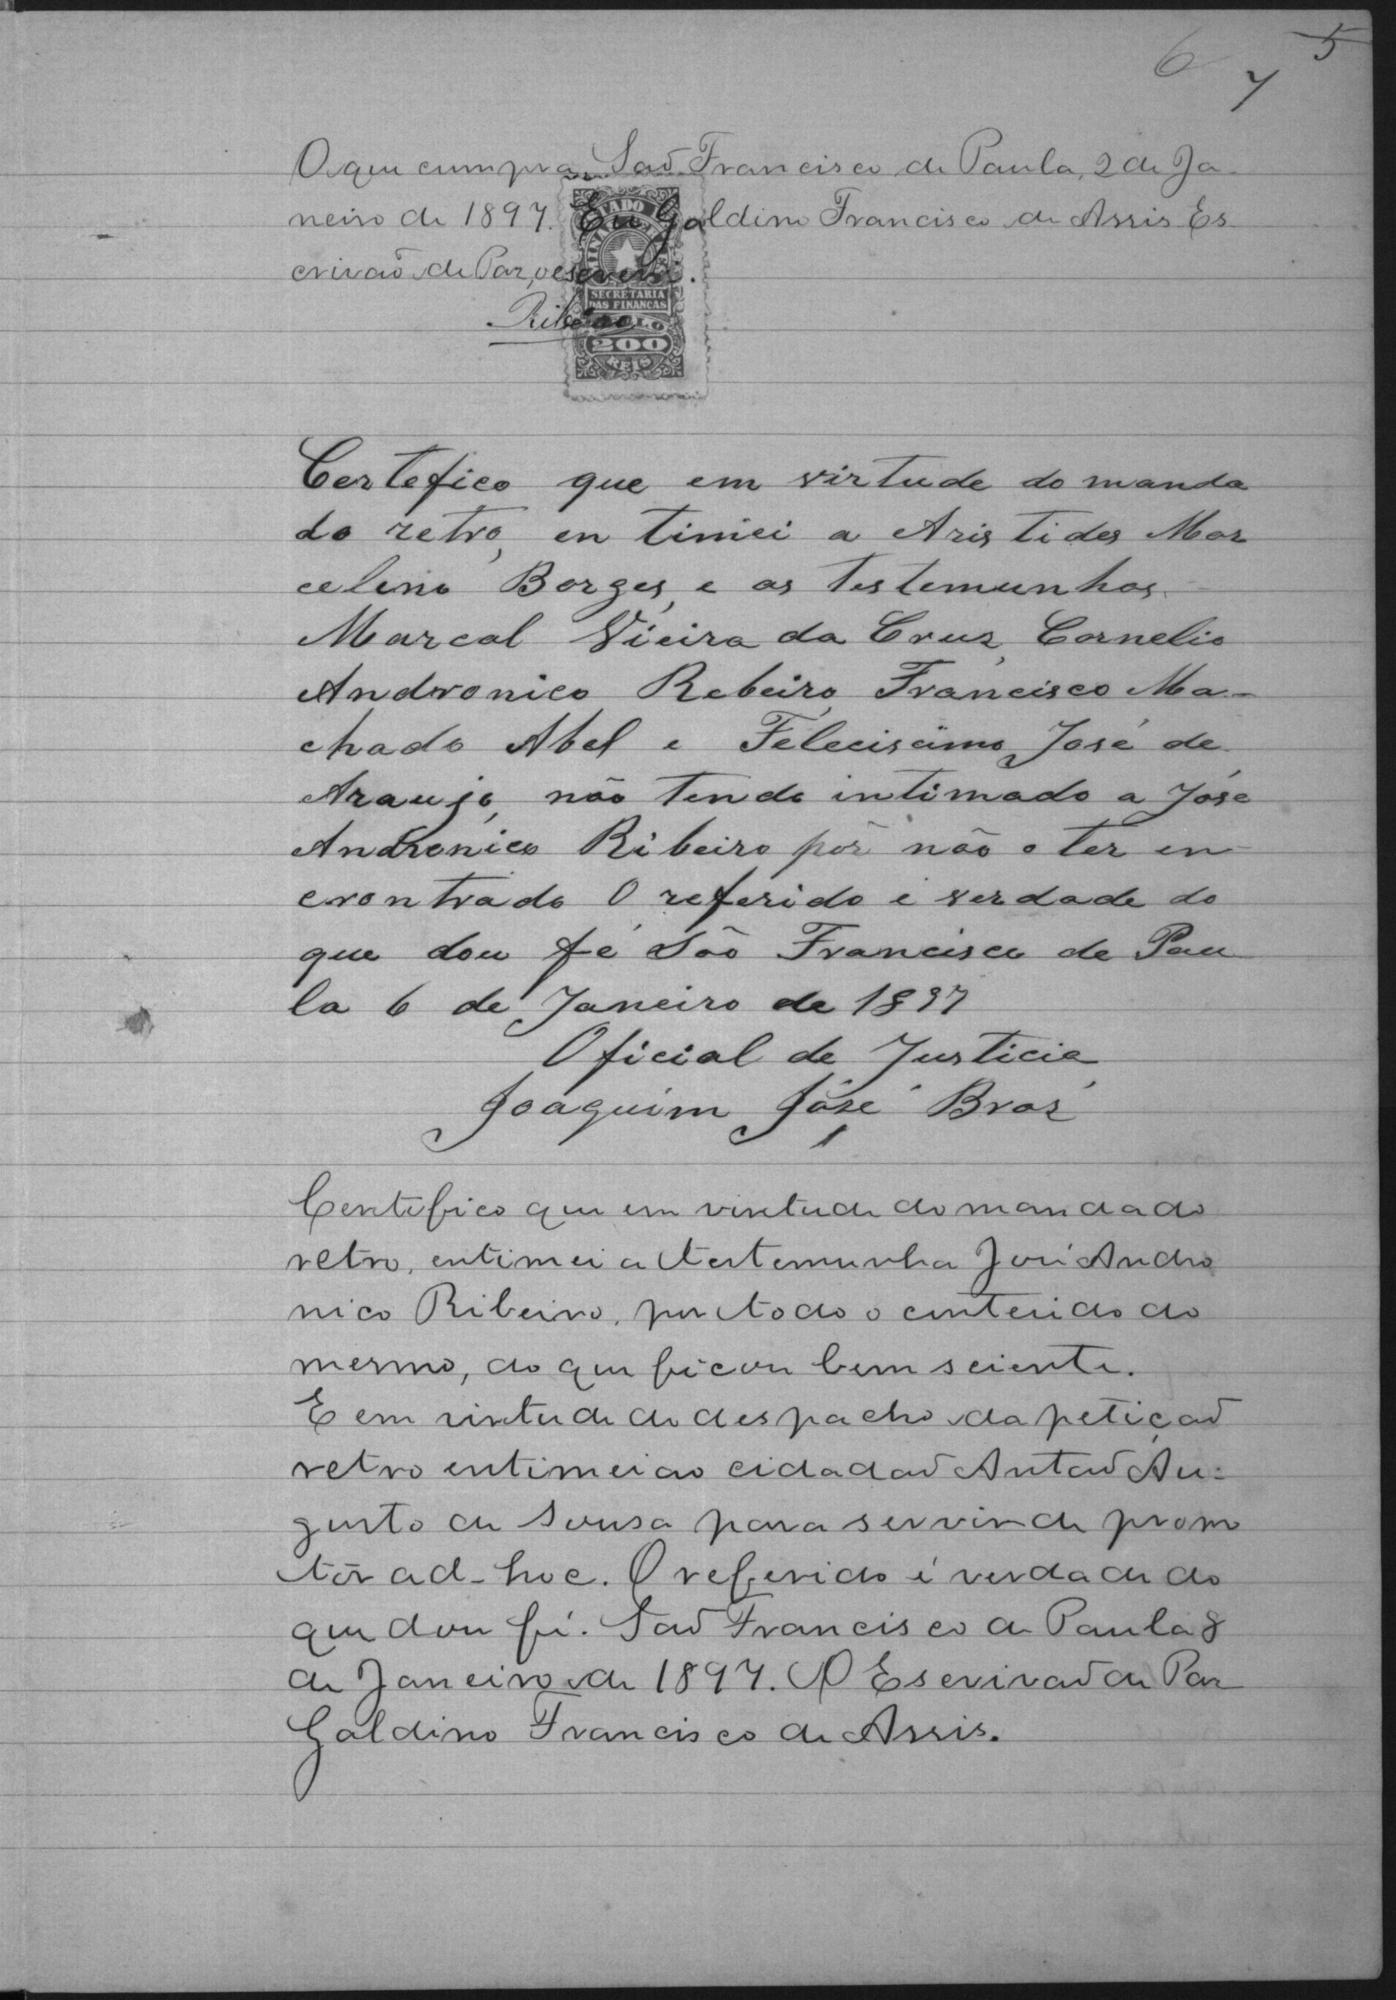 6 7 5
O que cumpra. Saõ Francisco de Paula, 2 de Ja-
neiro de 1897. Eu Galdino Francisco de Assis Es-
crivaõ de Paz, o escrevi.
Ribeiro
ESTADO
SECRETARIA
DAS FINANCAS
SELLO
200
REIS
Certefico que em virtude do manda
do retro, en timei a Aristides Mar
celino Borges, e as testemunhas
Marcal Vieira da Cruz, Cornelio
Andronico Rebeiro, Francisco Ma-
chado Abel e Felecissimo José de
Araujo, não tendo intimado a José
Andronico Ribeiro por não o ter en-
crontrado O referido é verdade do
que dou fé São Francisco de Pau
la 6 de Janeiro de 1897
Oficial de Justicia
Joaquim José Braz
Certifico que em virtude do mandado
retro, entimei a testemunha José Andro
nico Ribeiro, por todo o conteúdo do
mesmo, do que ficou bem sciente.
E em virtude do despacho da petiçaõ
retro entimei ao cidadaõ Antaõ Au-
gusto de Sousa para servir de promo
tor ad-hoc. O referido é verdade do
que dou fé. Saõ Francisco de Paula 8
de Janeiro de 1897. O Escrivaõ de Paz
Galdino Francisco de Assis.